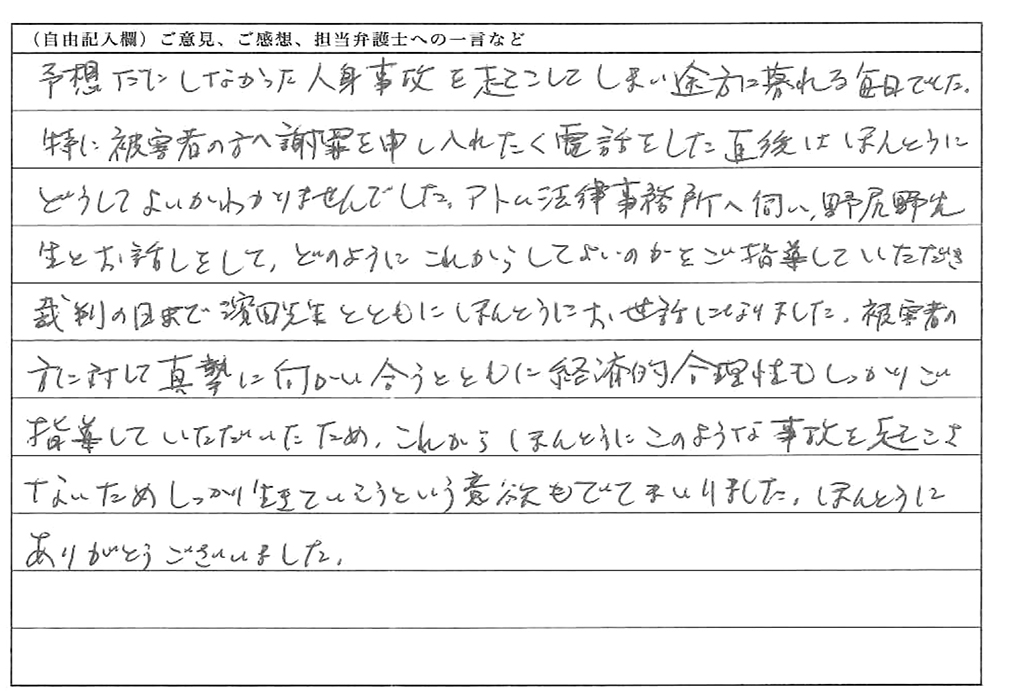 （自由記入欄）ご意見、ご感想、担当弁護士への一言など
予想だにしなかった人身事故を起こしてしまい途方に暮れる毎日でした。
特に被害者の方へ謝罪を申し入れたく電話をした直後はほんとうに
どうしてよいかわかりませんでした。アトム法律事務所へ伺い、野尻野先
生とお話しをして、どのようにこれからしてよいのかをご指導していただき
裁判の日まで濱田先生とともにほんとうにお世話になりました。被害者の
方に対して真摯に向かい合うとともに経済的合理性もしっかりご
指導していただいたため、これからほんとうにこのような事故を起こさ
ないためしっかり生きていこうという意欲もでてまいりました。ほんとうに
ありがとうございました。